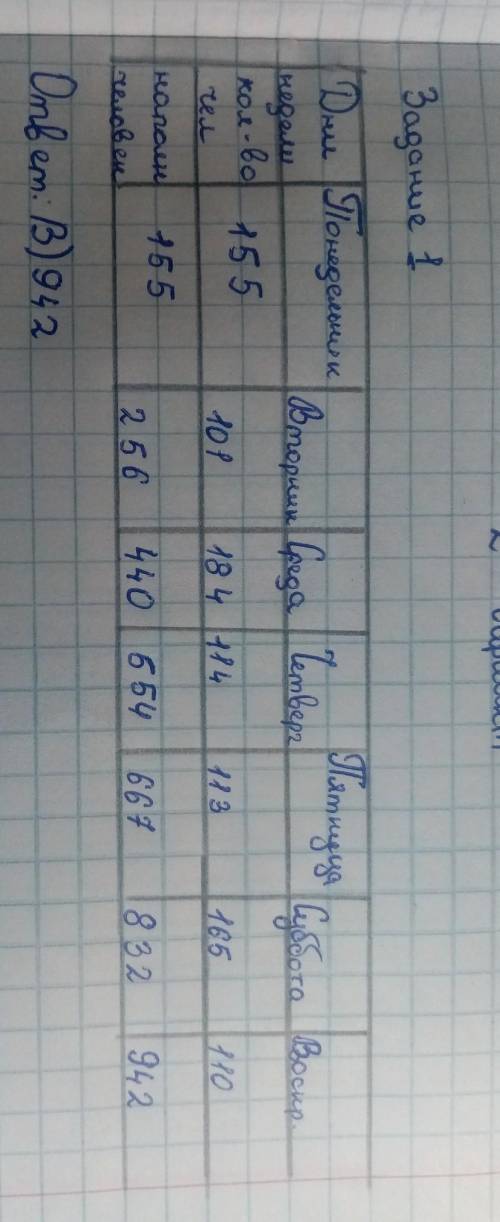 Задание 1
Дни недели Понедельник Вторник Среда Четверг Пятница Суббота Воскр.
кол-во чел 155 101 184 114 113 165 110
накопи человек 155 256 440 554 667 832 942
Ответ: В) 942